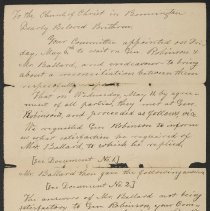 To the Church of Christ in Bennington
Dearly Beloved Brethren,
Your Committee appointed on Fri-
day, May 6, to wait on Geo Robinson &
Mr. Ballard, and endeavour to bring
about a reconciliation between them
reported:
That on Wednesday, May 11, by agreement
of all parties, they met at Geo
Robinson's, and proceeded as follows viz.
We requested Geo Robinson to inform
us what satisfaction he required of
Mr. Ballard, to which he replied,
[See Document No. 1]
Mr Ballard then gave the following answer
[See Document No. 2]
The answer of Mr. Ballard not being
satisfactory to Geo Robinson, your Com-